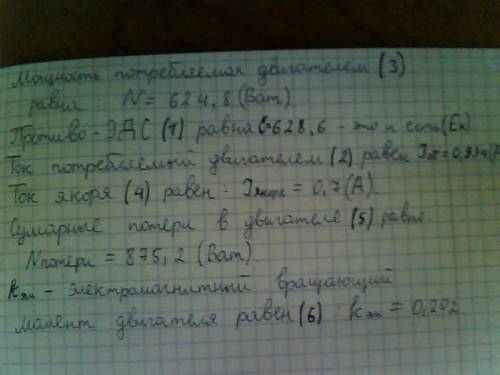 Мощность потребляемая двигателем (3)
равна: N = 624,8 (Ват)
Противо-ЭДС (1) равна 628,6 - это и есть (Ея)
Ток потребляемый двигателем (2) равен
Ток якоря (4) равен: = 0,7 (А).
Сумарные потери в двигателе (5) равно
Nпотери = 875,2 (Ват).
kэм - электромагнитный вращающий
момент двигателя равен (6): kэм = 0,202